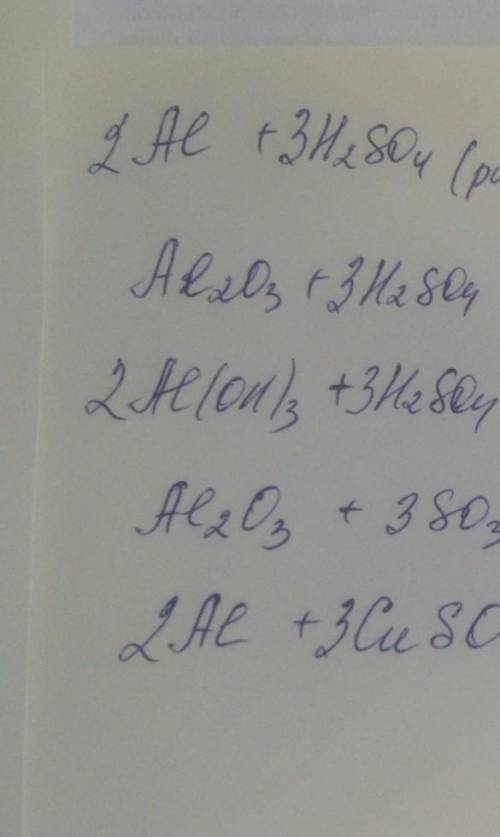 2Al + 3H₂SO₄ (ра
Al₂O₃ + 3H₂SO₄
2Al(OH)₃ + 3H₂SO₄
Al₂O₃ + 3SO₃
2Al + 3CuSO